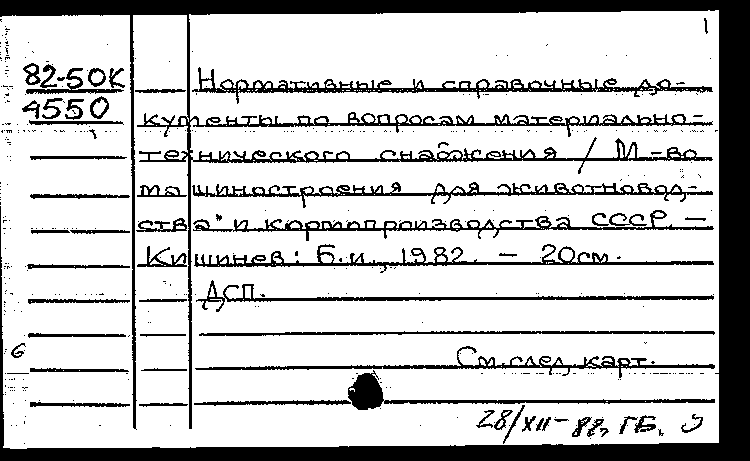 1
82-50К Нормативные и справочные до-
4550 кументы по вопросам материально-
технического снабжения / М-во
машиностроения для животновод-
ства" и кормопроизводства СССР. —
Кишинев: Б.и., 1982. — 20см.
ДСП.
6
См. след. карт.
28/XII-88, ГБ.